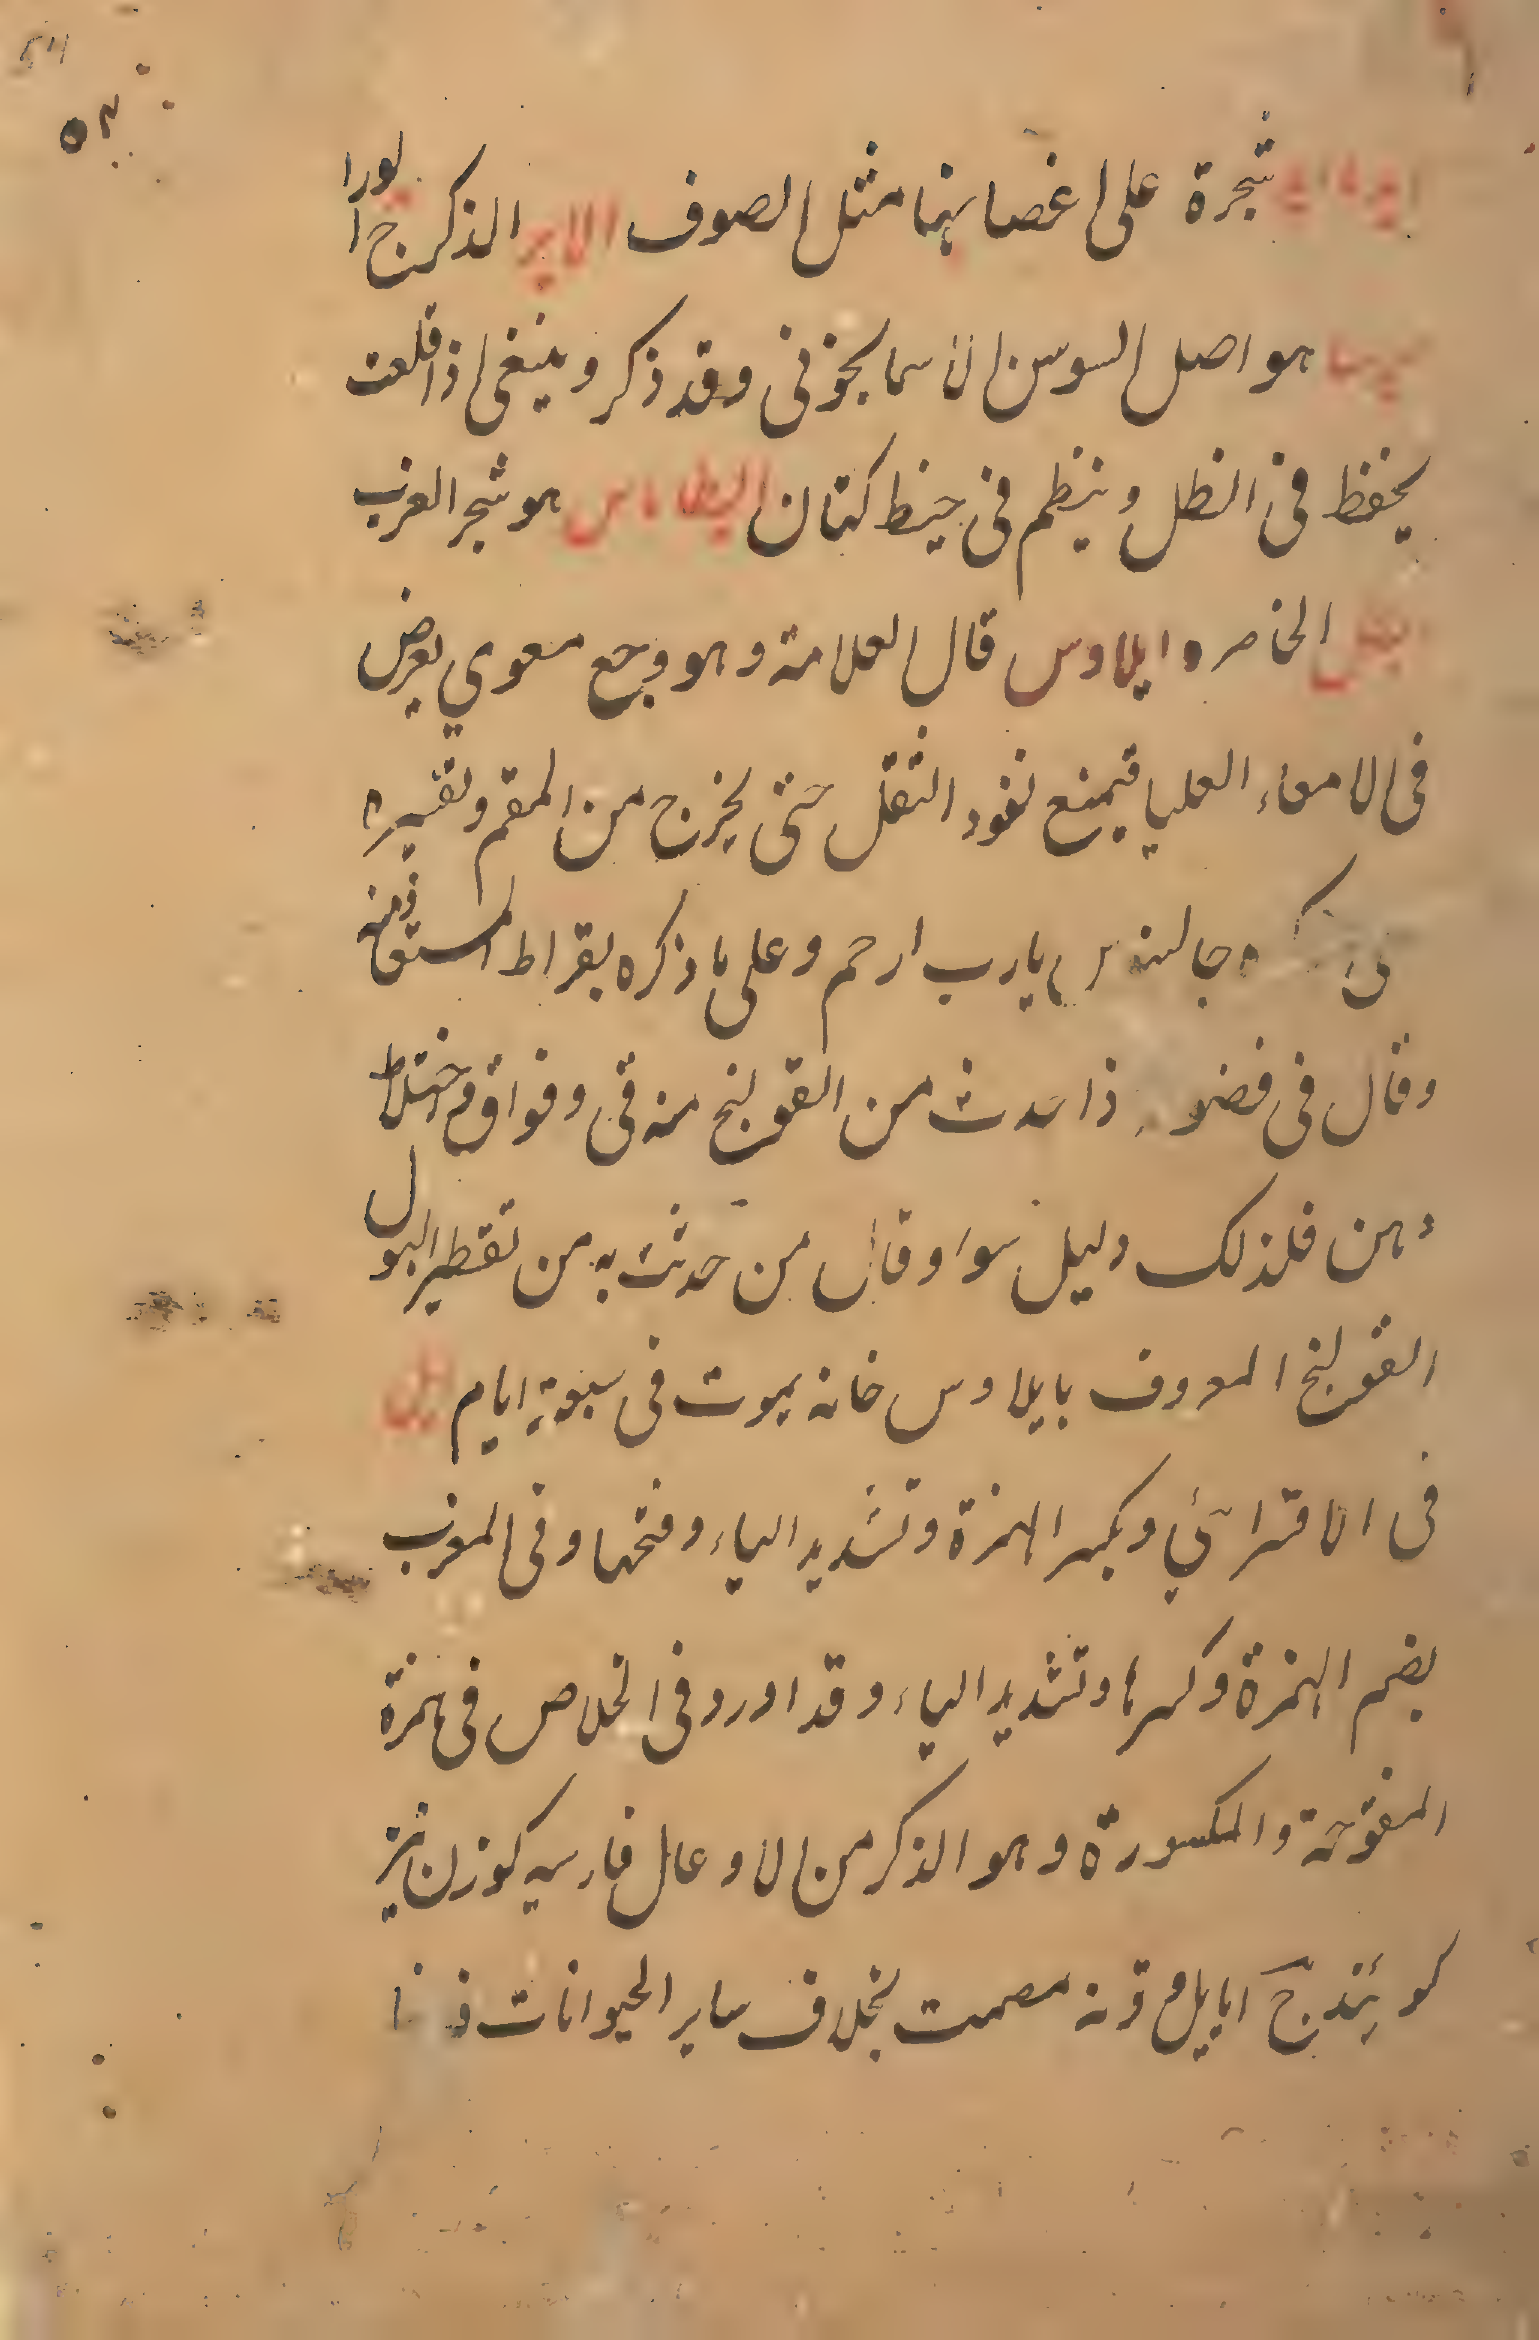 ٥٣
شجرة على اغصانها مثل الصوف الاير الذكر ج ا لورا
هو اصل السوسن الاسمانجوني وقد ذكر وينبغي اذا قلعت
يحفظ في الظل وينظم في خيط كتان هو شجر الغرب
الخاصره ايلاوس قال العلامة وهو وجع معوي يعرض
في الامعاء العليا فيمنع نفود الثقل حتى يخرج من المقم وتفسيره
جالينوس يارب ارحم وعلى ما ذكره بقراط المستعاذ منه
وقال في حدث من القولنج منه قى وفواق واختلاط
ذهن فلذلك دليل سوء وقال من حدث به من تقطير البول
القولنج المعروف بايلاوس فانه يموت في سبعة ايام ايل
في الاقترائي وبكسر الهمزة وتشديد الياء وفتحها وفي المغرب
بضم الهمزة وكسرها وتشديد الياء وقد اورد في الخلاص في همزة
المفتوحة والمكسورة وهو الذكر من الاوعال فارسيه كوزن نيز
كويند ج ايايل وقرنه مصمت بخلاف ساير الحيوانات